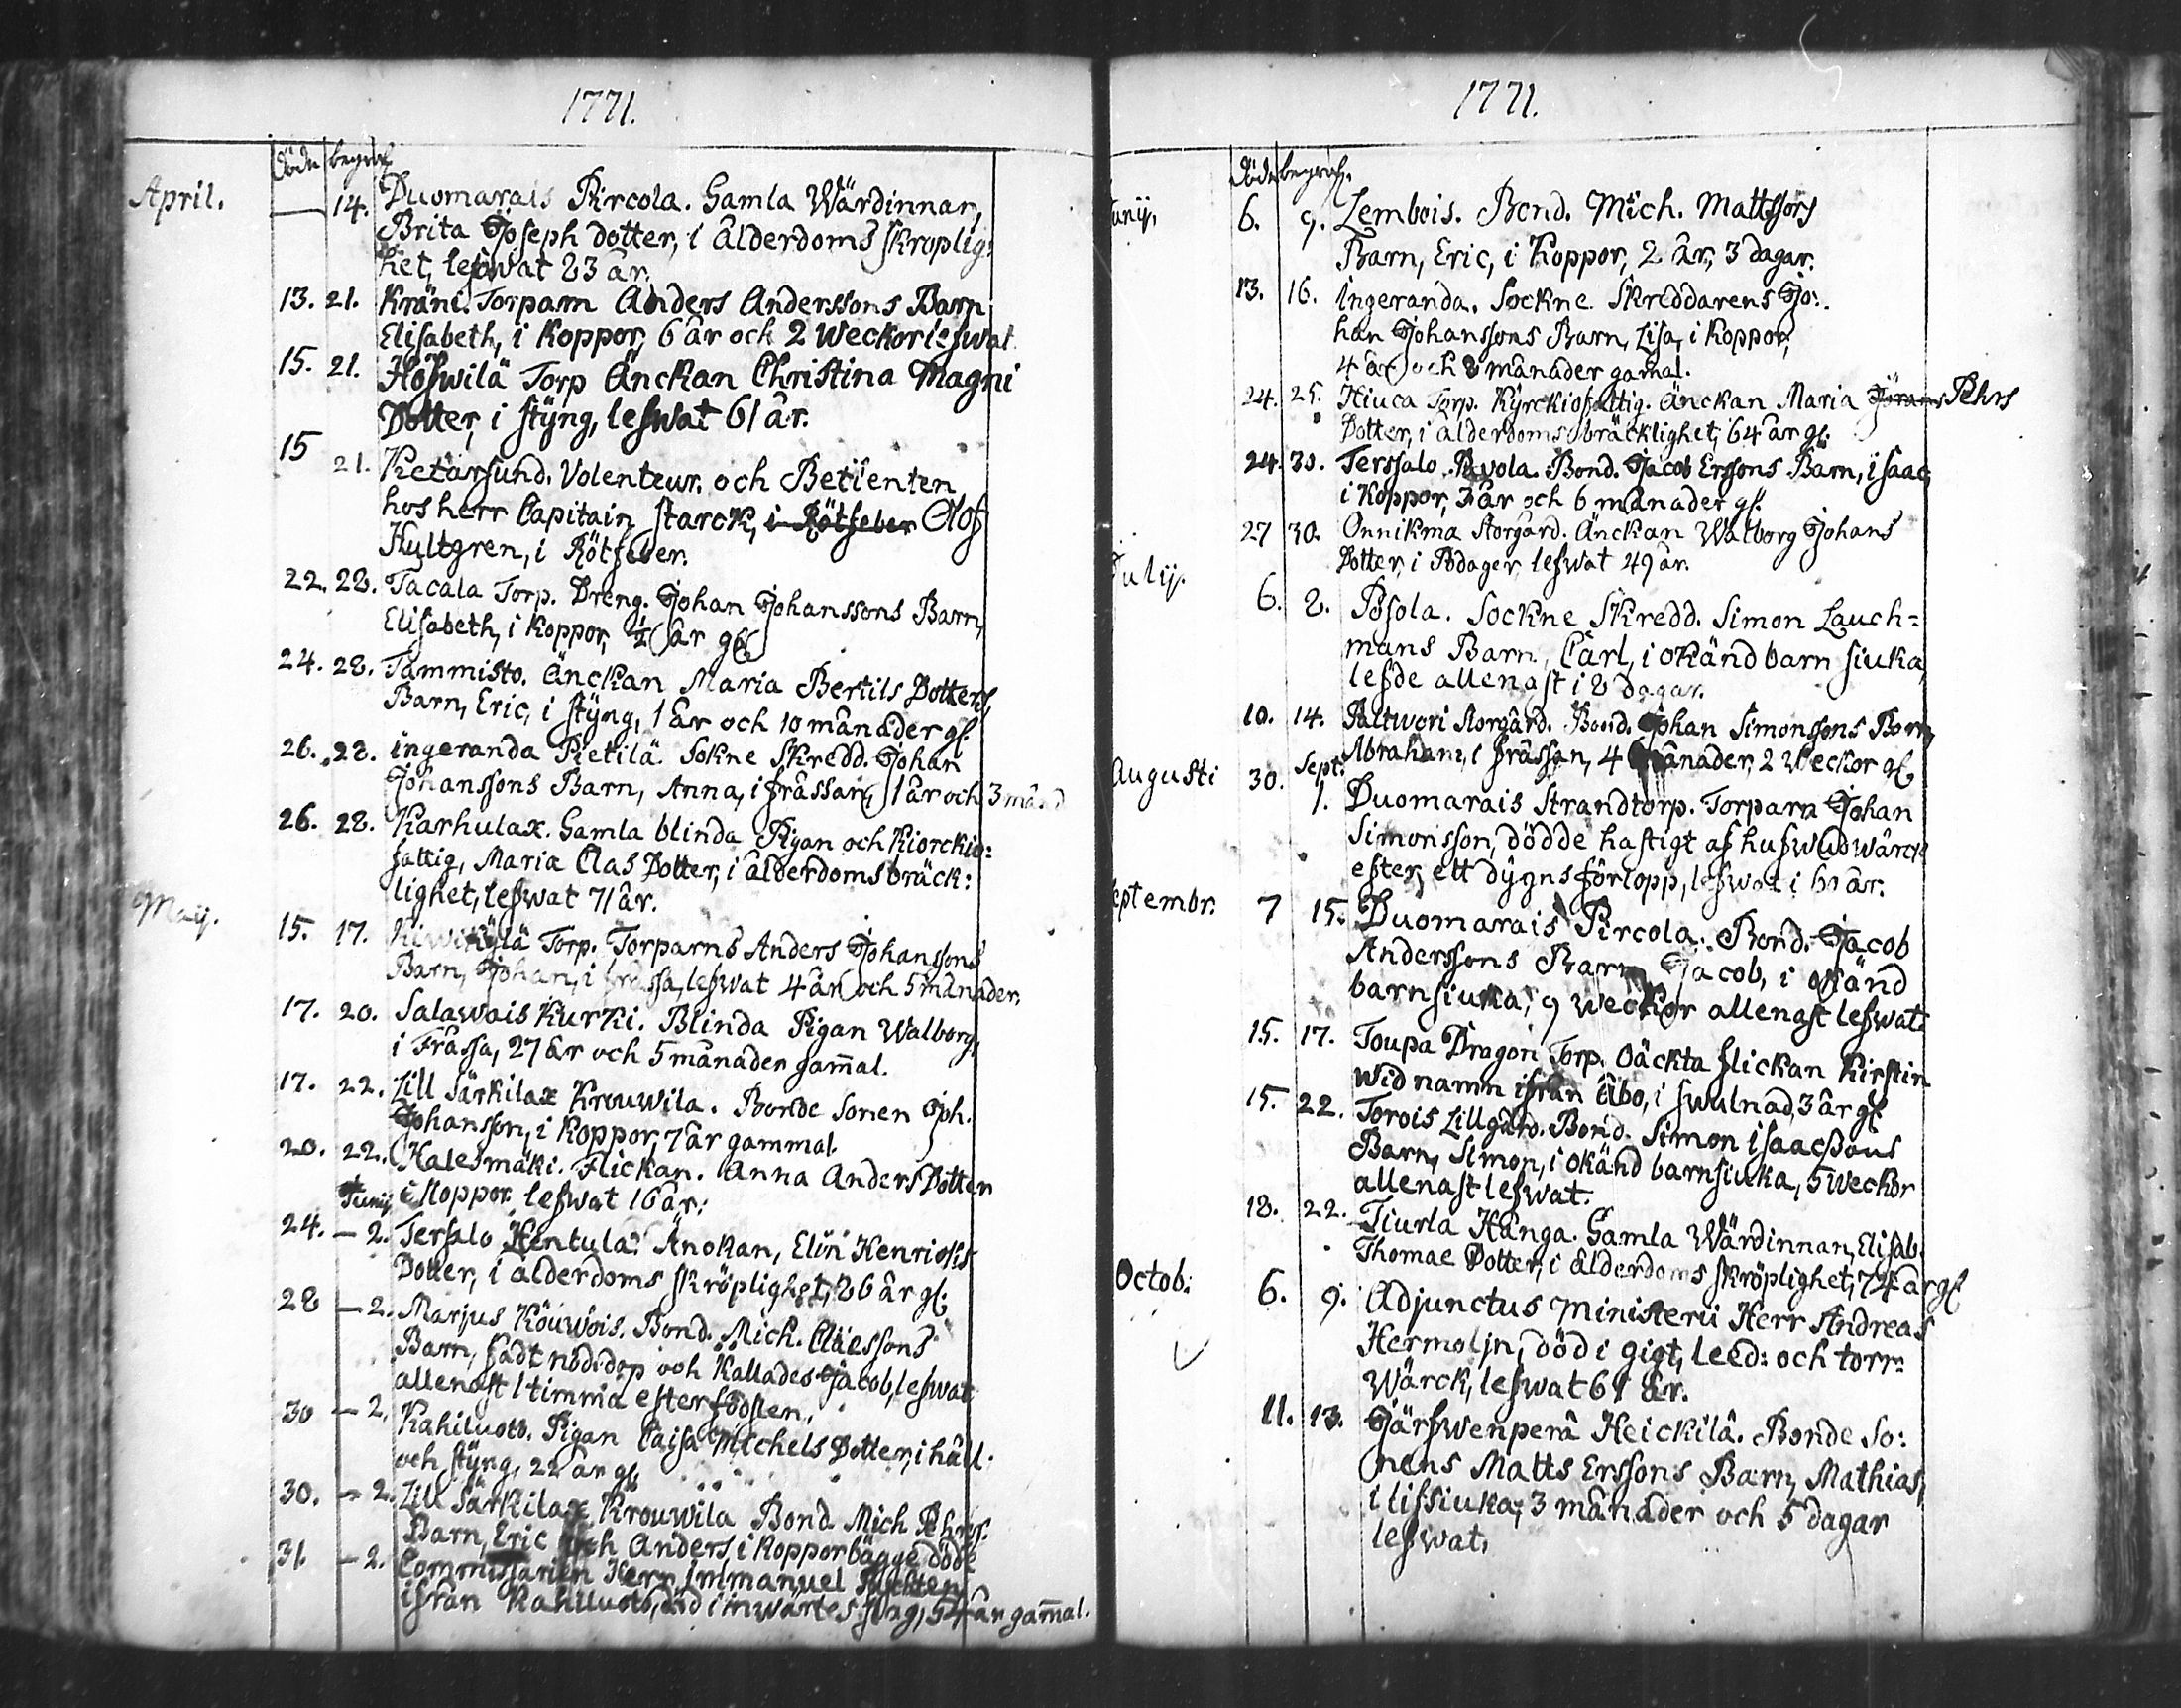 1771.
döde begrof
April. — 14. Duomarais Pircola. Gamla Wärdinnan,
Brita Joseph dotter, i ålderdoms skröplig-
het, lefwat 83 år.
13. 21. Kräni. Torparn Anders Anderssons Barn
Elisabeth, i koppor, 6 år och 2 Weckor lefwat
15. 21. Höfwilä Torp Änckan Christina Magni
Dotter, i styng, lefwat 61 år.
15 21. Ketarsund. Volenteur. och Betienten
hos herr Capitain Starck, i Rötfeber Olof
Hultgren, i Rötfeber.
22. 28. Tacala Torp. Dreng. Johan Johanssons Barn,
Elisabeth, i koppor, ½ år gl.
24. 28. Tammisto. Änckan Maria Bertils Dotters
Barn, Eric, i styng, 1 år och 10 månader gl.
26. 28. ingeranda Pietilä. Sokne Skredd. Johan
Johanssons Barn, Anna, i frässan, 1 år och 3 månd
26. 28. Karhulax. Gamla blinda Pigan och Kiorckio-
fattig, Maria Clas Dotter, i ålderdoms bräck:
lighet, lefwat 71 år.
May. 15. 17. Kiwikylä Torp. Torparns Anders Johanssons
Barn, Johan, i frassa, lefwat 4 år och 5 månader.
17. 20. Salawais Kurki. Blinda Pigan Walborg,
i Frassa, 27 år och 5 månader gam̄al.
17. 22. Lill Särkilax Krouwila. Bonde Sonen Joh.
Johansson, i koppor, 7 år gammal.
20. 22. Halesmäki. Flickan. Anna Anders Dotter
Junij i koppor. lefwat 16 år.
24. — 2. Tersalo Hentula. Änckan, Elin Henricks
Dotter, i ålderdoms skröplighet, 86 år gl.
28 — 2. Marjus Köuwois. Bond. Mich. Claessons
Barn, fådt nöddop och kallades Jacob, lefwat
allenast 1 timma efter födslen.
30 — 2. Kahiluoto. Pigan Caisa Michels Dotter, i håll.
och styng, 22 år gl.
30. — 2. Lill Särkilax Krouwila Bond Mich Pehrss.
Barn, Eric och Anders, i koppor bägge döde
31. — 2. Commissarien Herr Immanuel
ifrån Kahiluoto, död i inwärtes styng, 54 år gam̄al.
1771.
döde begrof.
Junij. 6. 9. Lembois. Bond. Mich. Mattssons
Barn, Eric, i Koppor, 2 år, 3 dagar.
13. 16. Ingeranda. Sockne Skreddarens Jo:
han Johanssons Barn, Lisa, i koppor,
4 år och 8 månader gamal.
24. 25. Hiuca Torp. Kyrckiofattig. Änckan Maria Görans Pehrs
Dotter, i ålderdoms bräcklighet, 64 år gl.
24. 30. Terssalo. Pavola. Bond. Jacob Erssons Barn, isaac
i Koppor, 3 år och 6 månader gl.
27 30. Onnikma Storgård. Änckan Walborg Johans
Dotter, i Podager, lefwat 49 år.
Julij. 6. 8. Posola. Sockne Skredd. Simon Lauch=
mans Barn, Carl, i okänd barn siuka,
lefde allenast i 8 dagar.
10. 14. Paltwori Storgård. Bond. Johan Simonssons Barn,
Abraham, i frässan, 4 månader, 2 Weckor gl.
Augusti 30. Sept. 1. Duomarais Strandtorp. Torparn Johan
Simonsson, dödde hastigt af hufwudwärck
efter ett dygns förlopp, lefwat i år.
Septembr. 7 15. Duomarais Pircola. Bond. Jacob
Anderssons Barn Jacob, i okänd
barnsiuka, 9 weckor allenast lefwat.
15. 17. Toupa Dragon Torp. Oäckta flickan Kirstin
wid namn ifrån Åbo, i swulnad, 3 år gl
15. 22. Torois Lillgård. Bond. Simon isaacssons
Barn, Simon, i okänd barnsiuka, 5 weckor
allenast lefwat.
18. 22. Tiurla Hånga. Gamla Wärdinnan, Elisab.
Thomae Dotter, i ålderdoms skröplighet, 74 år gl
Octob: 6. 9. Adjunctus Ministerii Herr Andreas
Hermolin, död i gigt, leed: och torr=
Wärck, lefwat 61 år.
11. 13. Järfwenperä Heickilä. Bonde So:
nens Matts Erssons Barn, Mathias,
i lifsiuka, 3 månader och 5 dagar
lefwat.